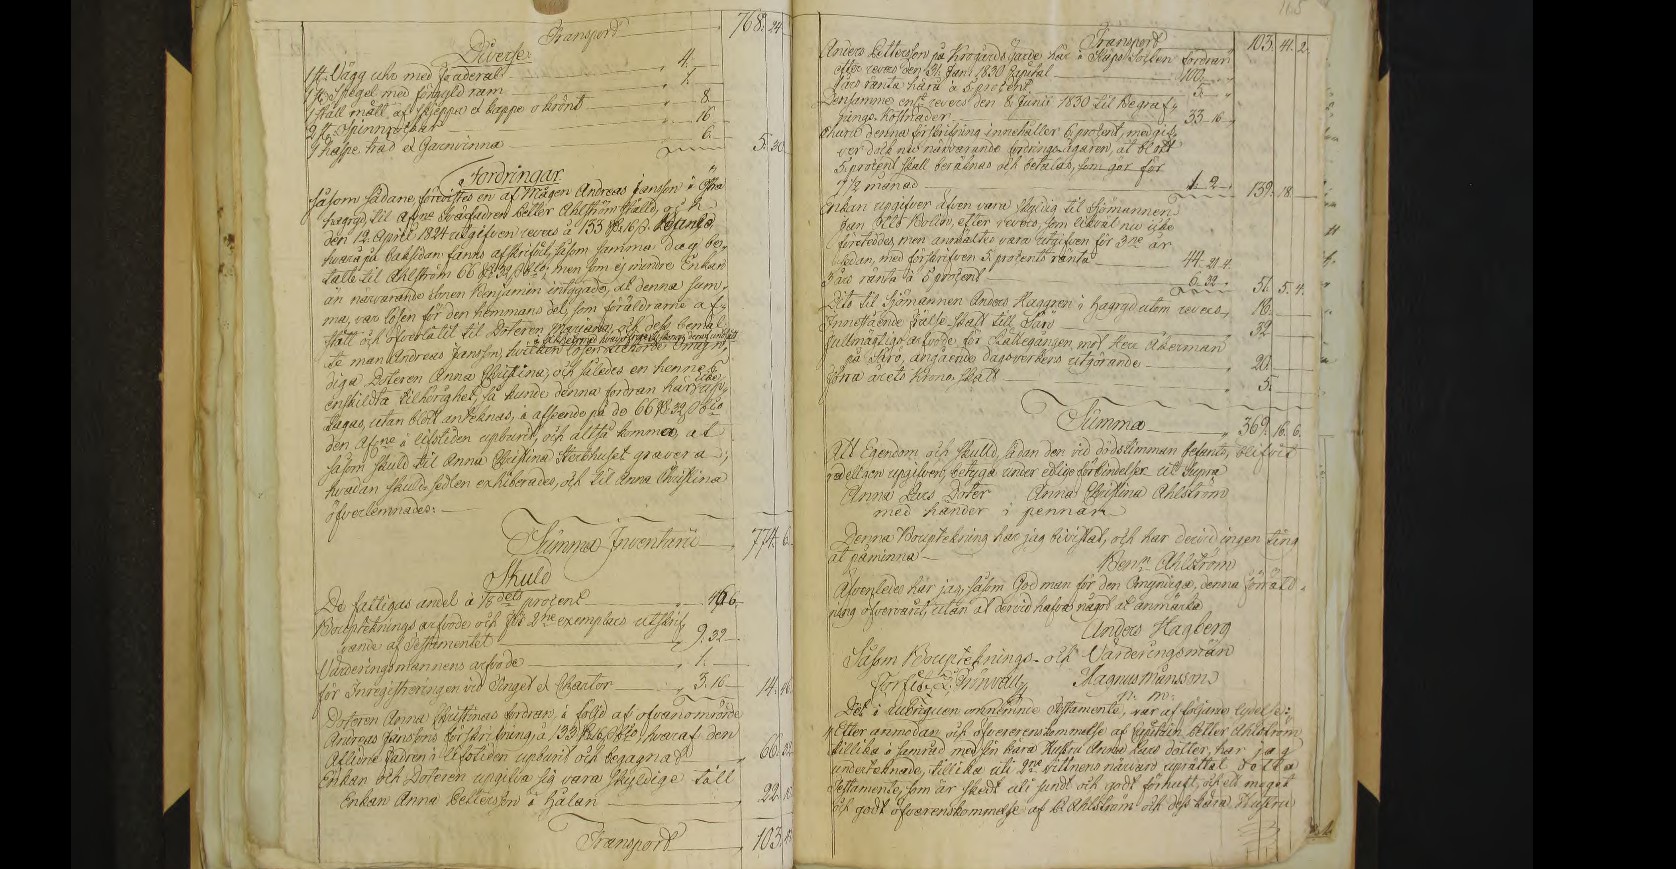 Transport 768. 24
Diverse
1 st. Vägg uhr med foderal 4.
1 st. Spegel med förgyld ram 1.
1 ställ mått, af skjeppa et kappe okrönt 8
2 st. Spinnrockar 16
1 haspe träd et Garnvinna 6. 5. 30
Fordringar
Såsom sådane förevistes en af Mågen Andreas Janson i
hagryd til Afne Svärfadren Petter Ahlström ställd, och
den 12 April 1824 utgifven revers à 133 Rd 16 s. Banco,
hvarå på baksidan fanns afskrifvit, såsom samma dag be-
talte til Ahlström 66 Rd 32 s. B:co; men som ej mindre Enkan
än närvarande Sonen Benjamin intygade, at denna sum-
ma, var lösen för den hemmans del, som föräldrarne af-
stått och öfverlåtit til Doteren Mariana, och dess bemäl-
te man Andreas Janson, hvilken lösen tilhörde omyn-
diga Doteren Anna Christina, och således en hennes
enskildta tilhörighet, så kunde denna fordran här icke upp-
tagas, utan blott anteknas, i afseende på de 66 Rd 32 s. B:co
den Afne i lifstiden upburit, och altså komma at
såsom skuld til Anna Christina Sterbhuset gravera;
hvadan skuldsedlen exhiberades, och til Anna Christina
öfverlemnades:
Summa Inventarii 774. 6
Skuld
De fattigas andel à 1/8 dels procent 46
Boupteknings arfvode och för 2ne exemplars utskrif-
vande af Testamentet 9. 32
Värderingsmannens arfvode 1.
för Inregistreringen vid Tinget et Chartor 3. 16 14.
Doteren Anna Christinas fordran, i följd af ofvanomrörde
Andreas Jansons förskrifning, à 133 Rd 16 s. B:co, hvaraf den
Aflidne Fadren i lifstiden upburit och begagnat 66. 32
Enkan och Doteren upgifva sig vara skyldige till
Enkan Anna Pettersson i Hålan 22.
Transport 103.
Transport 103. 41. 2.
Anders Pettersson på Krogårds Gärde här i Släps Socken fordran
efter revers den 31 Janu. 1830 Kapital 100
1 års ränta härå à 5 procent 5.
Densamme enl. revers den 8 Junii 1830 til Begraf-
nings kostnader 33 16
ehuru denna förskrifning innehåller 6 procent, medgif-
ver dock nu närvarande fordrings ägaren, at blott
5 procent skall beräknas och betalas, som gör för
7 1/2 månad 1. 2 139. 18
Enkan upgifver äfven vara skyldig til Sjömannen
Olle Bolin, efter revers, som likväl nu icke
företeddes, men anmältes vara utgifven för 3ne år
sedan, med förskrifven 5 procents ränta 44. 21. 4.
3 års ränta à 5 procent 6. 32 51. 5. 4.
Dito til Sjömannen Anders Haggren i hagryd utom revers 16.
Innestående Frälse Skatt till Särö 32
Fullmägtigs arfvode för Rättegången, mot Herr Åkerman
på Särö, angående dagsverkens utgörande 20.
förra årets Krono Skatt 5.
Summa 369. 16. 6.
Att Egendom och skulld, sådan den vid dödstimman befants, blifvit
redeligen upgifven, betyga under edsförbindelse ut supra
Anna Lars Doter Anna Christina Ahlström
med händer i pennan
Denna Boupteckning har jag bivistat, och har dervid ingen ting
at påminna
Benn. Ahlström
Äfvenledes har jag, såsom God man för den Omyndiga, denna förrätt-
ning öfvervarit, utan at dervid hafva något at anmärka
Anders Hagberg
Såsom Boupteknings- och Värderingsmän
Magnus Månsson
Det i Rubriquen omnämnde Testamente, var af följande lydelse:
Efter anmodan och öfverenskommelse af Kapitain Petter Ahlström
tillika i samråd med sin kära Hustru Anna Lars dotter, har jag
undertecknade, tillika uti 2ne vittnens närvaro uprättat detta
Testamente, som är skedt uti sundt och godt förnuft, och ett moget
och godt öfverenskommelse af P. Ahlström och dess kära Hustru